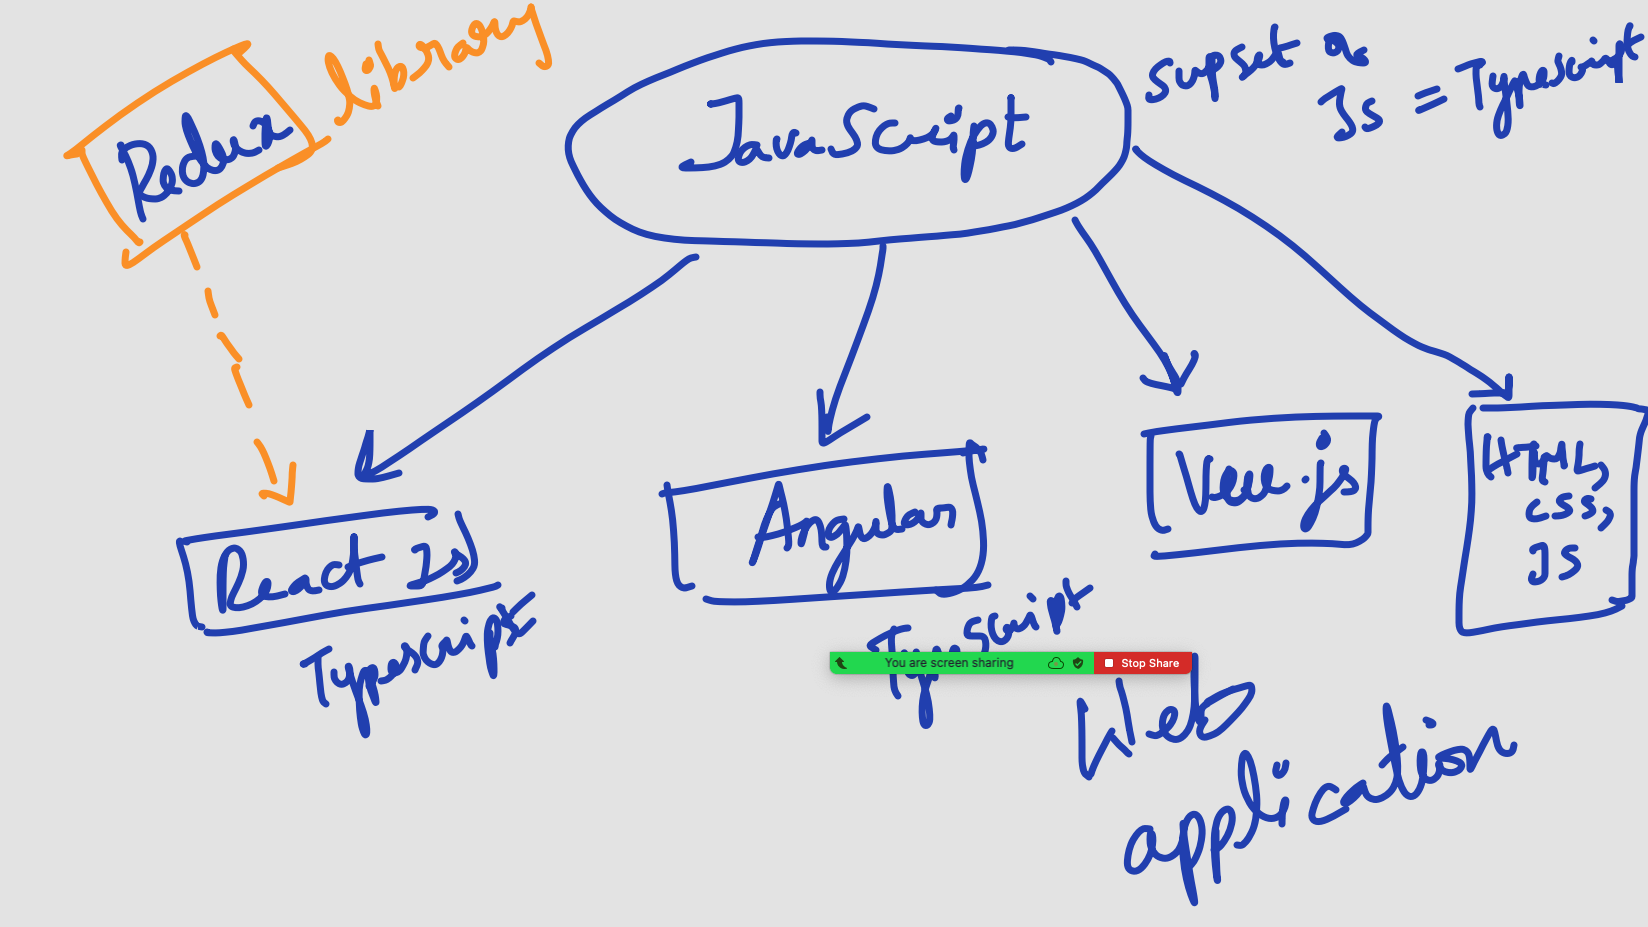 Redux
library
JavaScript
Supset of
Js = Typescript
React Js
Typescript
Angular
Typescript
Vue.js
HTML,
CSS,
JS
You are screen sharing
Stop Share
Web
application